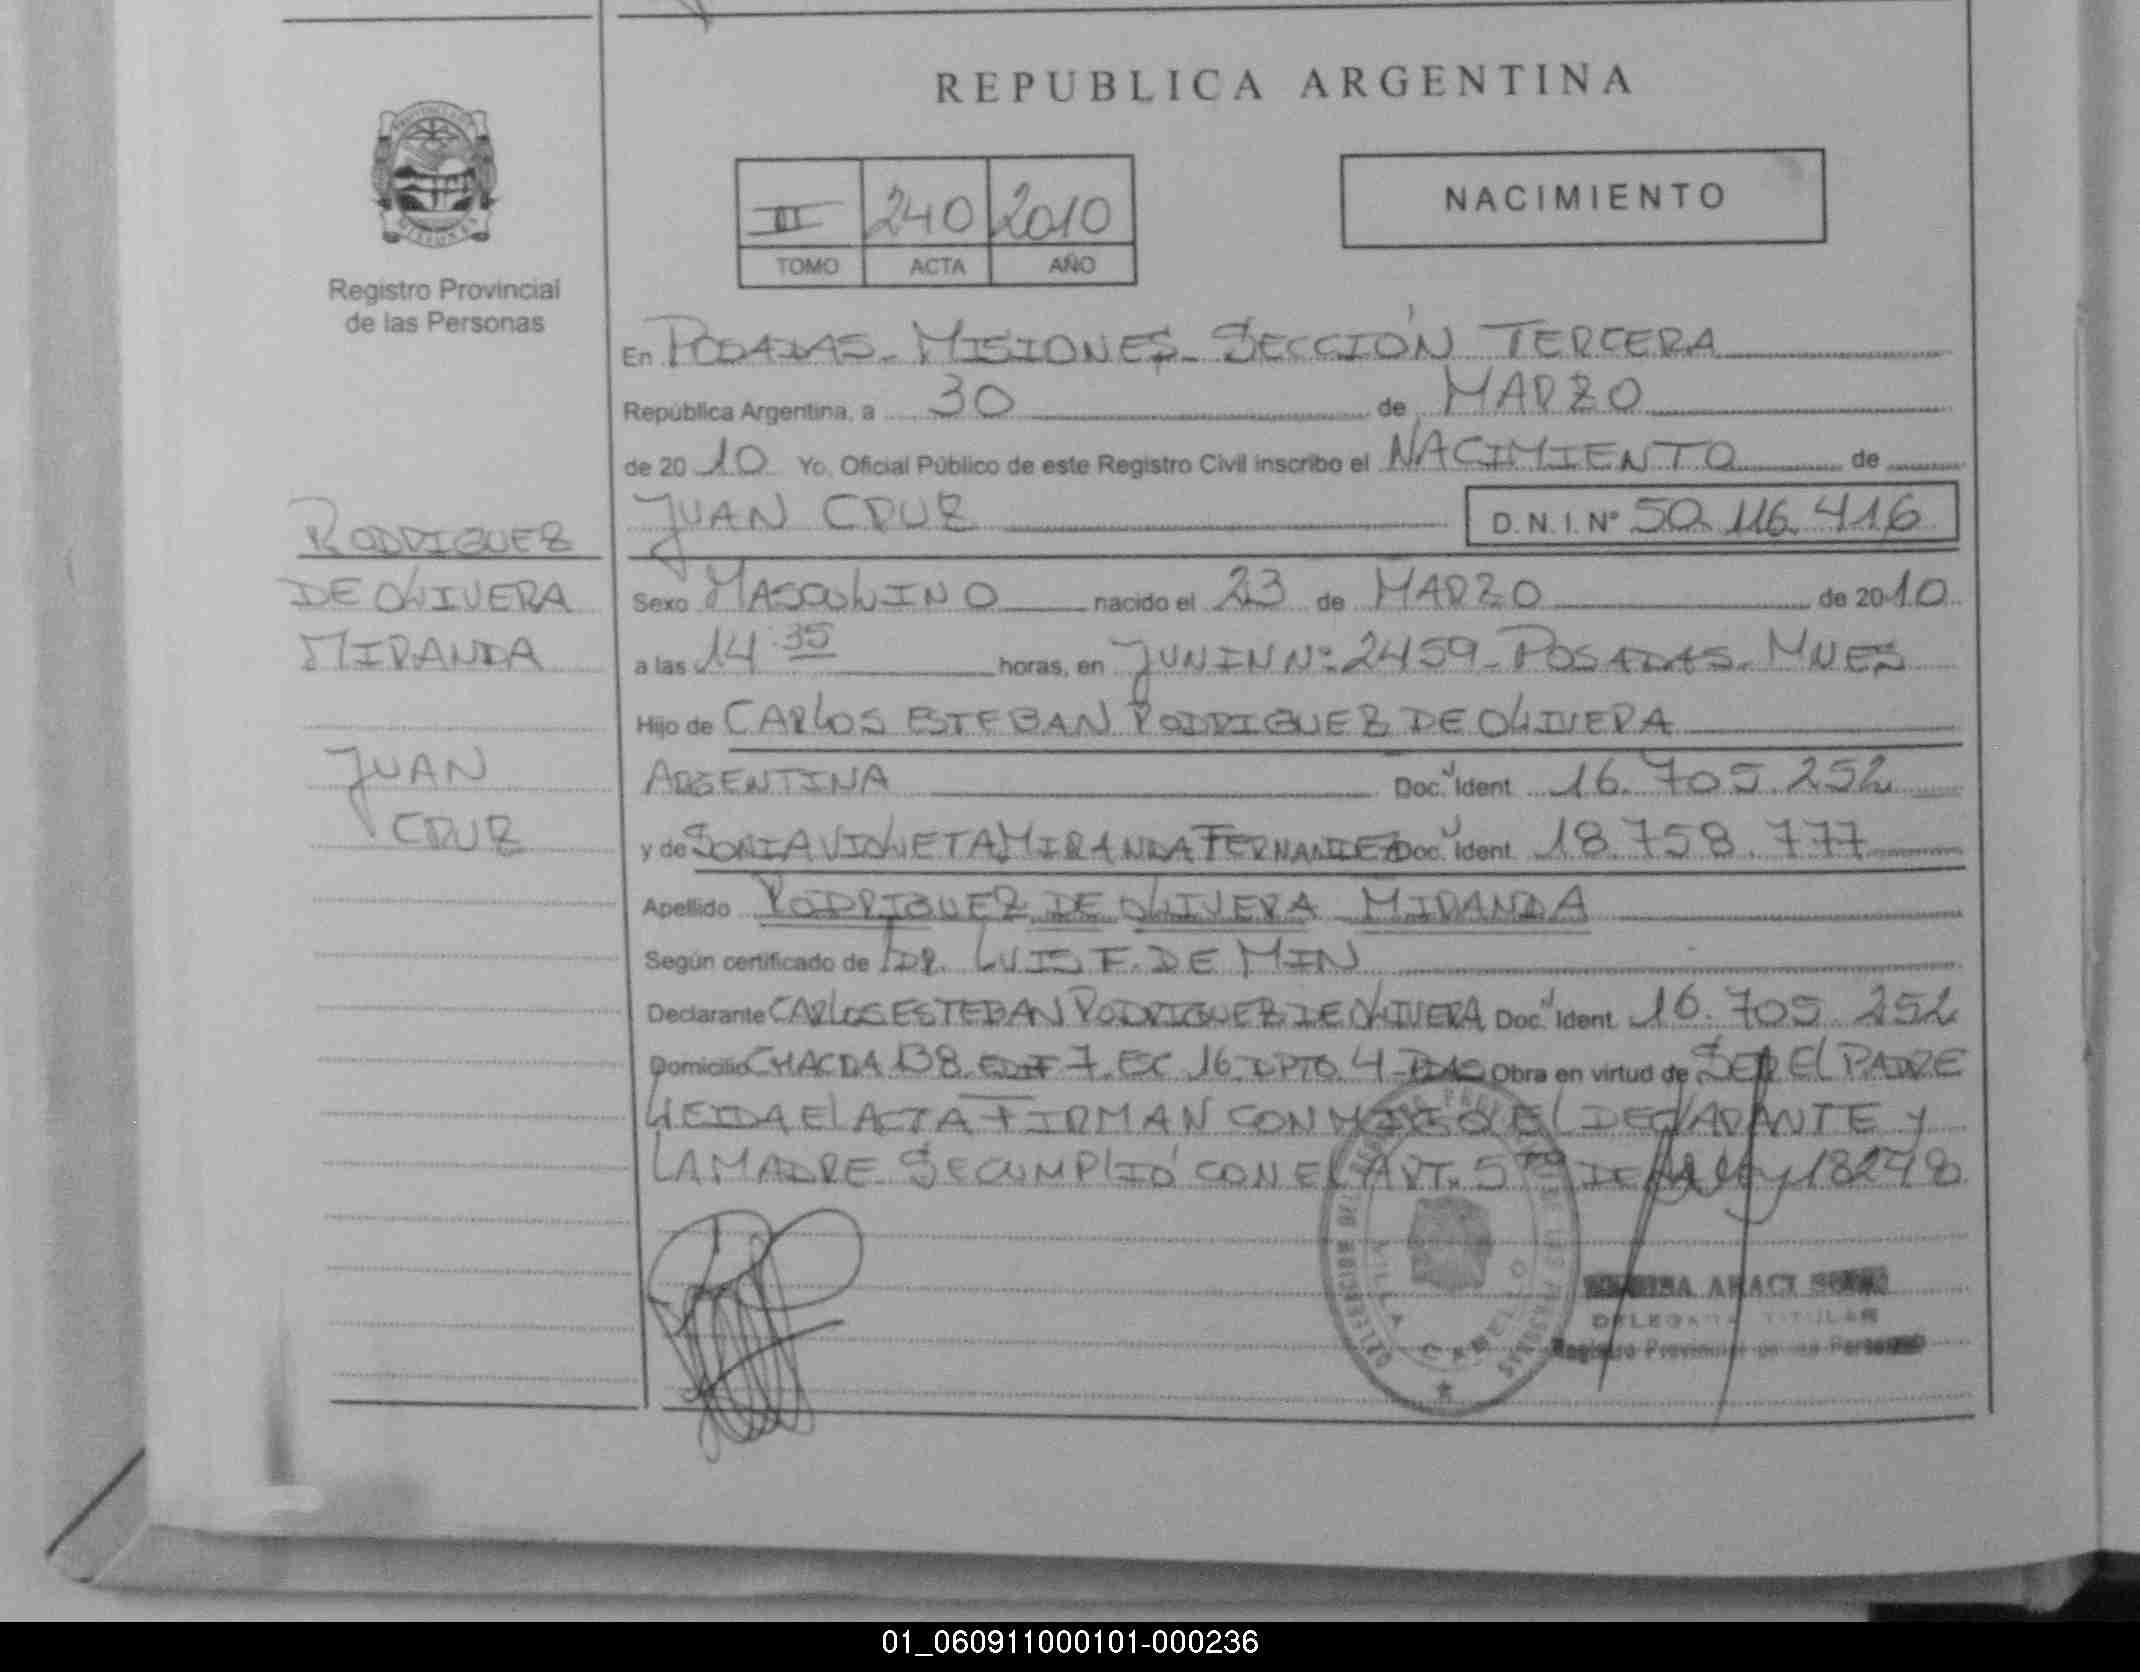 REPUBLICA ARGENTINA
NACIMIENTO
II 240 2010
TOMO ACTA AÑO
Registro Provincial
de las Personas
En POSADAS - MISIONES - SECCIÓN TERCERA
República Argentina, a 30 de MARZO
de 2010 Yo, Oficial Público de este Registro Civil inscribo el NACIMIENTO de
JUAN CRUZ D.N.I.Nº 50.116.416
RODRIGUEZ
DE OLIVERA
MIRANDA
JUAN
CRUZ
Sexo MASCULINO nacido el 23 de MARZO de 2010
a las 14:35 horas, en JUNIN Nº 2459 - POSADAS - MNES
Hijo de CARLOS ESTEBAN RODRIGUEZ DE OLIVERA
ARGENTINA Doc. Ident. 16.705.252
y de SONIA VIOLETA MIRANDA FERNANDEZ Doc. Ident. 18.758.777
Apellido RODRIGUEZ DE OLIVERA MIRANDA
Según certificado de DR. LUIS F. DE MIN
Declarante CARLOS ESTEBAN RODRIGUEZ DE OLIVERA Doc. Ident. 16.705.252
Domicilio CHACRA 138 EDIF 7. ESC 16 DPTO. 4 - PDAS Obra en virtud de SER EL PADRE
LEIDA EL ACTA FIRMAN CONMIGO EL DECLARANTE Y
LA MADRE SE CUMPLIÓ CON EL ART. 5to DE LA ley 18248
VILLA CABELLO
DELEGADA TITULAR
Registro Provincial de las Personas
01_060911000101-000236